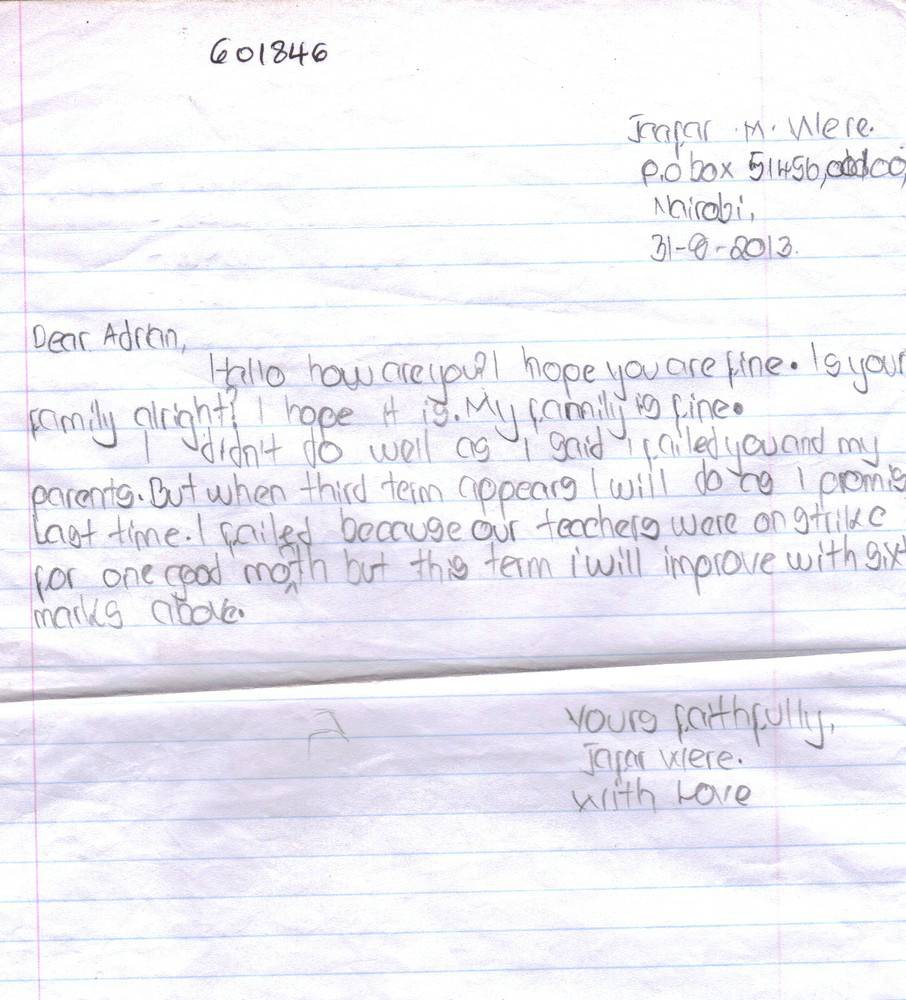 601846
Jaafar .M. Were.
P.O box 51456,
Nairobi,
31-8-2013.
Dear Adrian,
Hallo how are you? I hope you are fine. Is your
family alright? I hope it is. My family is fine.
I didn't do well as I said I failed you and my
parents. But when third term appears I will do as I promis
Last time. I failed because our teachers were on strike
for one good month but this term i will improve with sixt
marks above.
Yours faithfully,
Jafar Were.
With Love